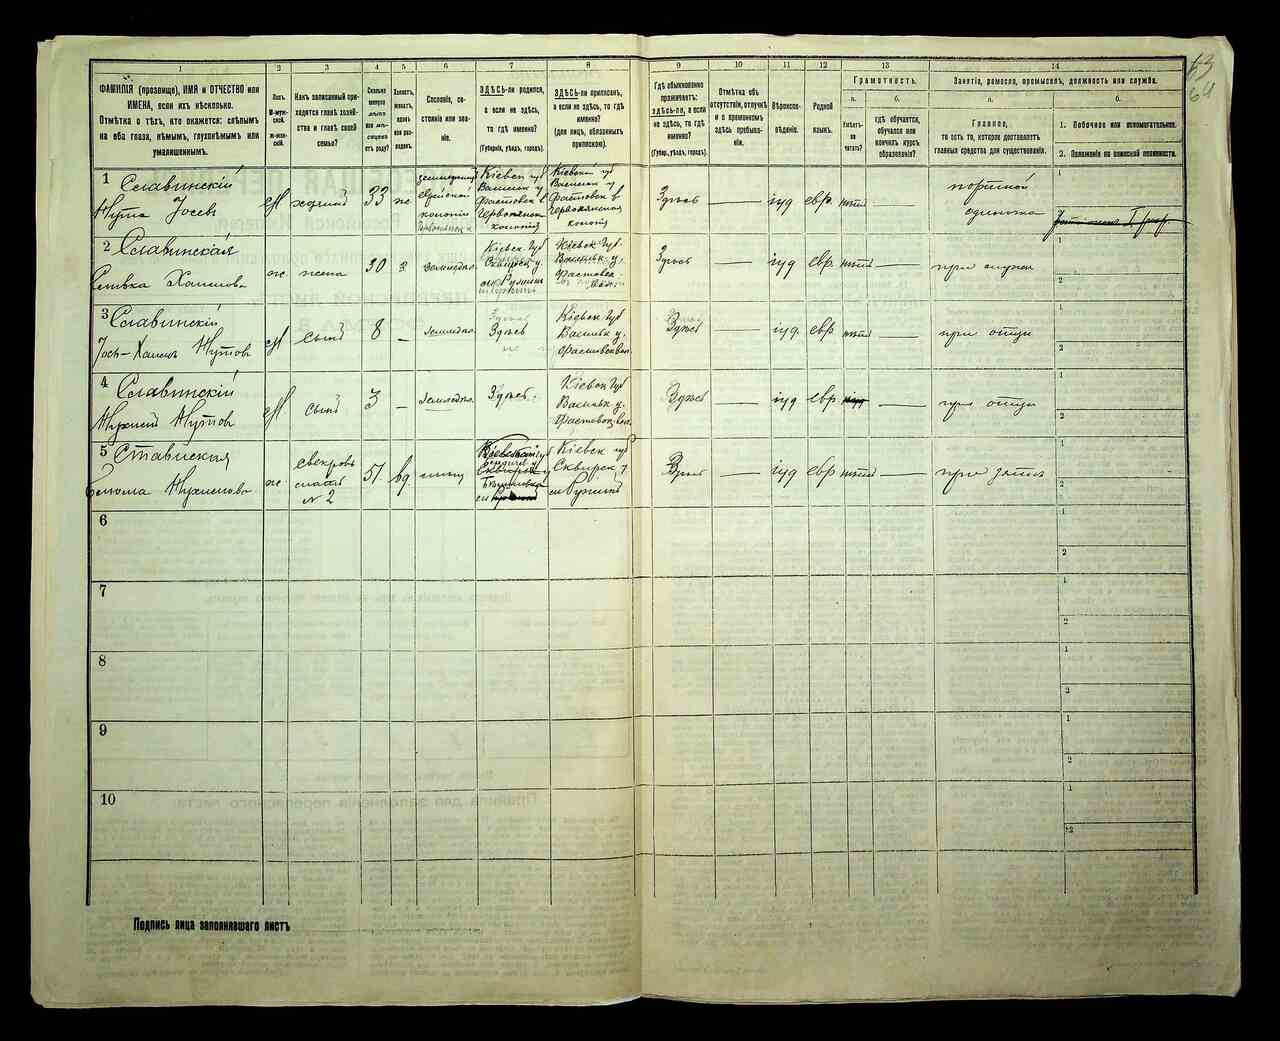 63
64
1 2 3 4 5 6 7 8 9 10 11 12 13 14
ФАМИЛІЯ (прозвище), ИМЯ и ОТЧЕСТВО или
ИМЕНА, если ихъ нѣсколько.
Отмѣтка о тѣхъ, кто окажется: слѣпымъ
на оба глаза, нѣмымъ, глухонѣмымъ или
умалишеннымъ.
Полъ.
М-муж-
ской.
Ж-жен-
скій.
Какъ записанный при-
ходится главѣ хозяй-
ства и главѣ своей
семьи?
Сколько
минуло
лѣтъ
или мѣ-
сяцевъ
отъ роду?
Холостъ,
женатъ,
вдовъ
или раз-
веденъ.
Сословіе, со-
стояніе или зва-
ніе.
ЗДѢСЬ-ли родился,
а если не здѣсь,
то гдѣ именно?
(Губернія, уѣздъ, городъ).
ЗДѢСЬ-ли приписанъ,
а если не здѣсь, то гдѣ
именно?
(для лицъ, обязанныхъ
припискою).
Гдѣ обыкновенно
проживаетъ:
здѣсь-ли, а если
не здѣсь, то гдѣ
именно?
(Губер., уѣздъ, городъ).
Отмѣтка объ
отсутствіи, отлучкѣ
и о временномъ
здѣсь пребыва-
ніи.
Вѣроиспо-
вѣданіе.
Родной
языкъ.
Грамотность.
а.
Умѣетъ-
ли
читать?
б.
гдѣ обучается,
обучался или
кончилъ курсъ
образованія?
Занятіе, ремесло, промыселъ, должность или служба.
а.
Главное,
то есть то, которое доставляетъ
главныя средства для существованія.
б.
1. Побочное или вспомогательное.
2. Положеніе по воинской повинности.
1 Славинскій
Нута Іосев
М
хозяинъ
33
же
еврейской
колоніи
Кіевск губ
Васильк у
Фастовск в
Червонянск
колонія
Кіевской губ
Васильк у
Фастовск в
Червонянская
колонія
Здѣсь
іуд
евр.
нѣтъ
портной
одиночка
1
2
2 Славинская
Хаимова
ж
жена
30
з
Земледѣл.
Кіевск. Губ
Сквирск у.
м. Ружинъ
Кіевск. Губ.
Васильк. у.
Фастовск.
вол.
Здѣсь
іуд
евр.
нѣтъ
при мужи
1
2
3 Славинскій
Іось-Хаимъ Нутовъ
М
сынъ
8
Земледѣл.
Здѣсь
Кіевск Губ
Васильк у.
Фастовск вол.
Здѣсь
іуд.
евр
нѣтъ
при отци
1
2
4 Славинскій
Нухимъ Нутовъ
М
сынъ
3
Земледѣл.
Здѣсь.
Кіевск Губ
Васильк у.
Фастовск. вол.
Здѣсь
іуд
евр.
при отци
1
2
5 Ставиская
Нухимова
ж
свекровь
№ 2
51.
вд.
Кіевской гу
Сквирск
Кіевск губ
Сквирск. у.
м Ружинъ
Здѣсь
іуд
евр
нѣтъ
при зятѣ
1
2
6
1
2
7
1
2
8
1
2
9
1
2
10
1
2
Подпись лица заполнявшаго листъ